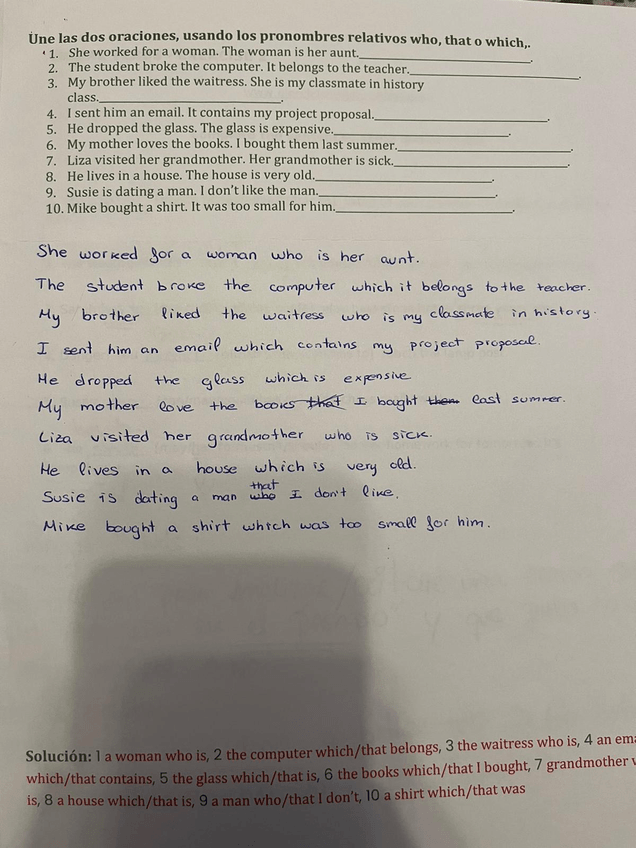 Une las dos oraciones, usando los pronombres relativos who, that o which,.
1. She worked for a woman. The woman is her aunt.____________.
2. The student broke the computer. It belongs to the teacher.____________.
3. My brother liked the waitress. She is my classmate in history
class.____________.
4. I sent him an email. It contains my project proposal.____________.
5. He dropped the glass. The glass is expensive.____________.
6. My mother loves the books. I bought them last summer.____________.
7. Liza visited her grandmother. Her grandmother is sick.____________.
8. He lives in a house. The house is very old.____________.
9. Susie is dating a man. I don't like the man.____________.
10. Mike bought a shirt. It was too small for him.____________.
She worked for a woman who is her aunt.
The student broke the computer which it belongs to the teacher.
My brother liked the waitress who is my classmate in history.
I sent him an email which contains my project proposal.
He dropped the glass which is expensive
My mother love the books that I bought them last summer.
Liza visited her grandmother who is sick.
He lives in a house which is very old.
that
Susie is dating a man who I don't like.
Mike bought a shirt which was too small for him.
Solución: 1 a woman who is, 2 the computer which/that belongs, 3 the waitress who is, 4 an
which/that contains, 5 the glass which/that is, 6 the books which/that I bought, 7 grandmother
is, 8 a house which/that is, 9 a man who/that I don't, 10 a shirt which/that was